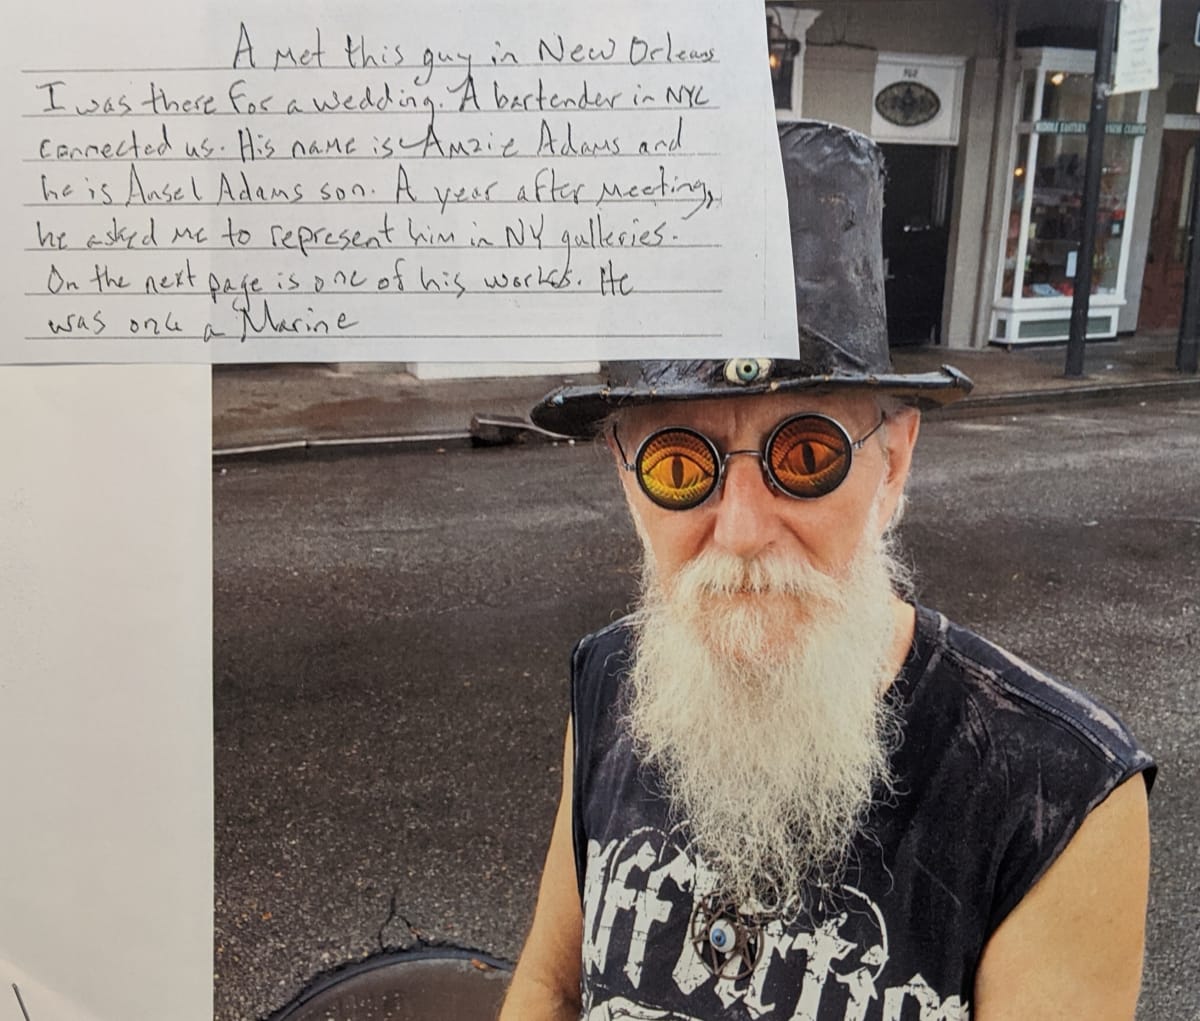 A met this guy in New Orleans
I was there for a wedding. A bartender in NYC
connected us. His name is Amzie Adams and
he is Ansel Adams son. A year after meeting,
he asked me to represent him in NY galleries.
On the next page is one of his works. He
was once a Marine